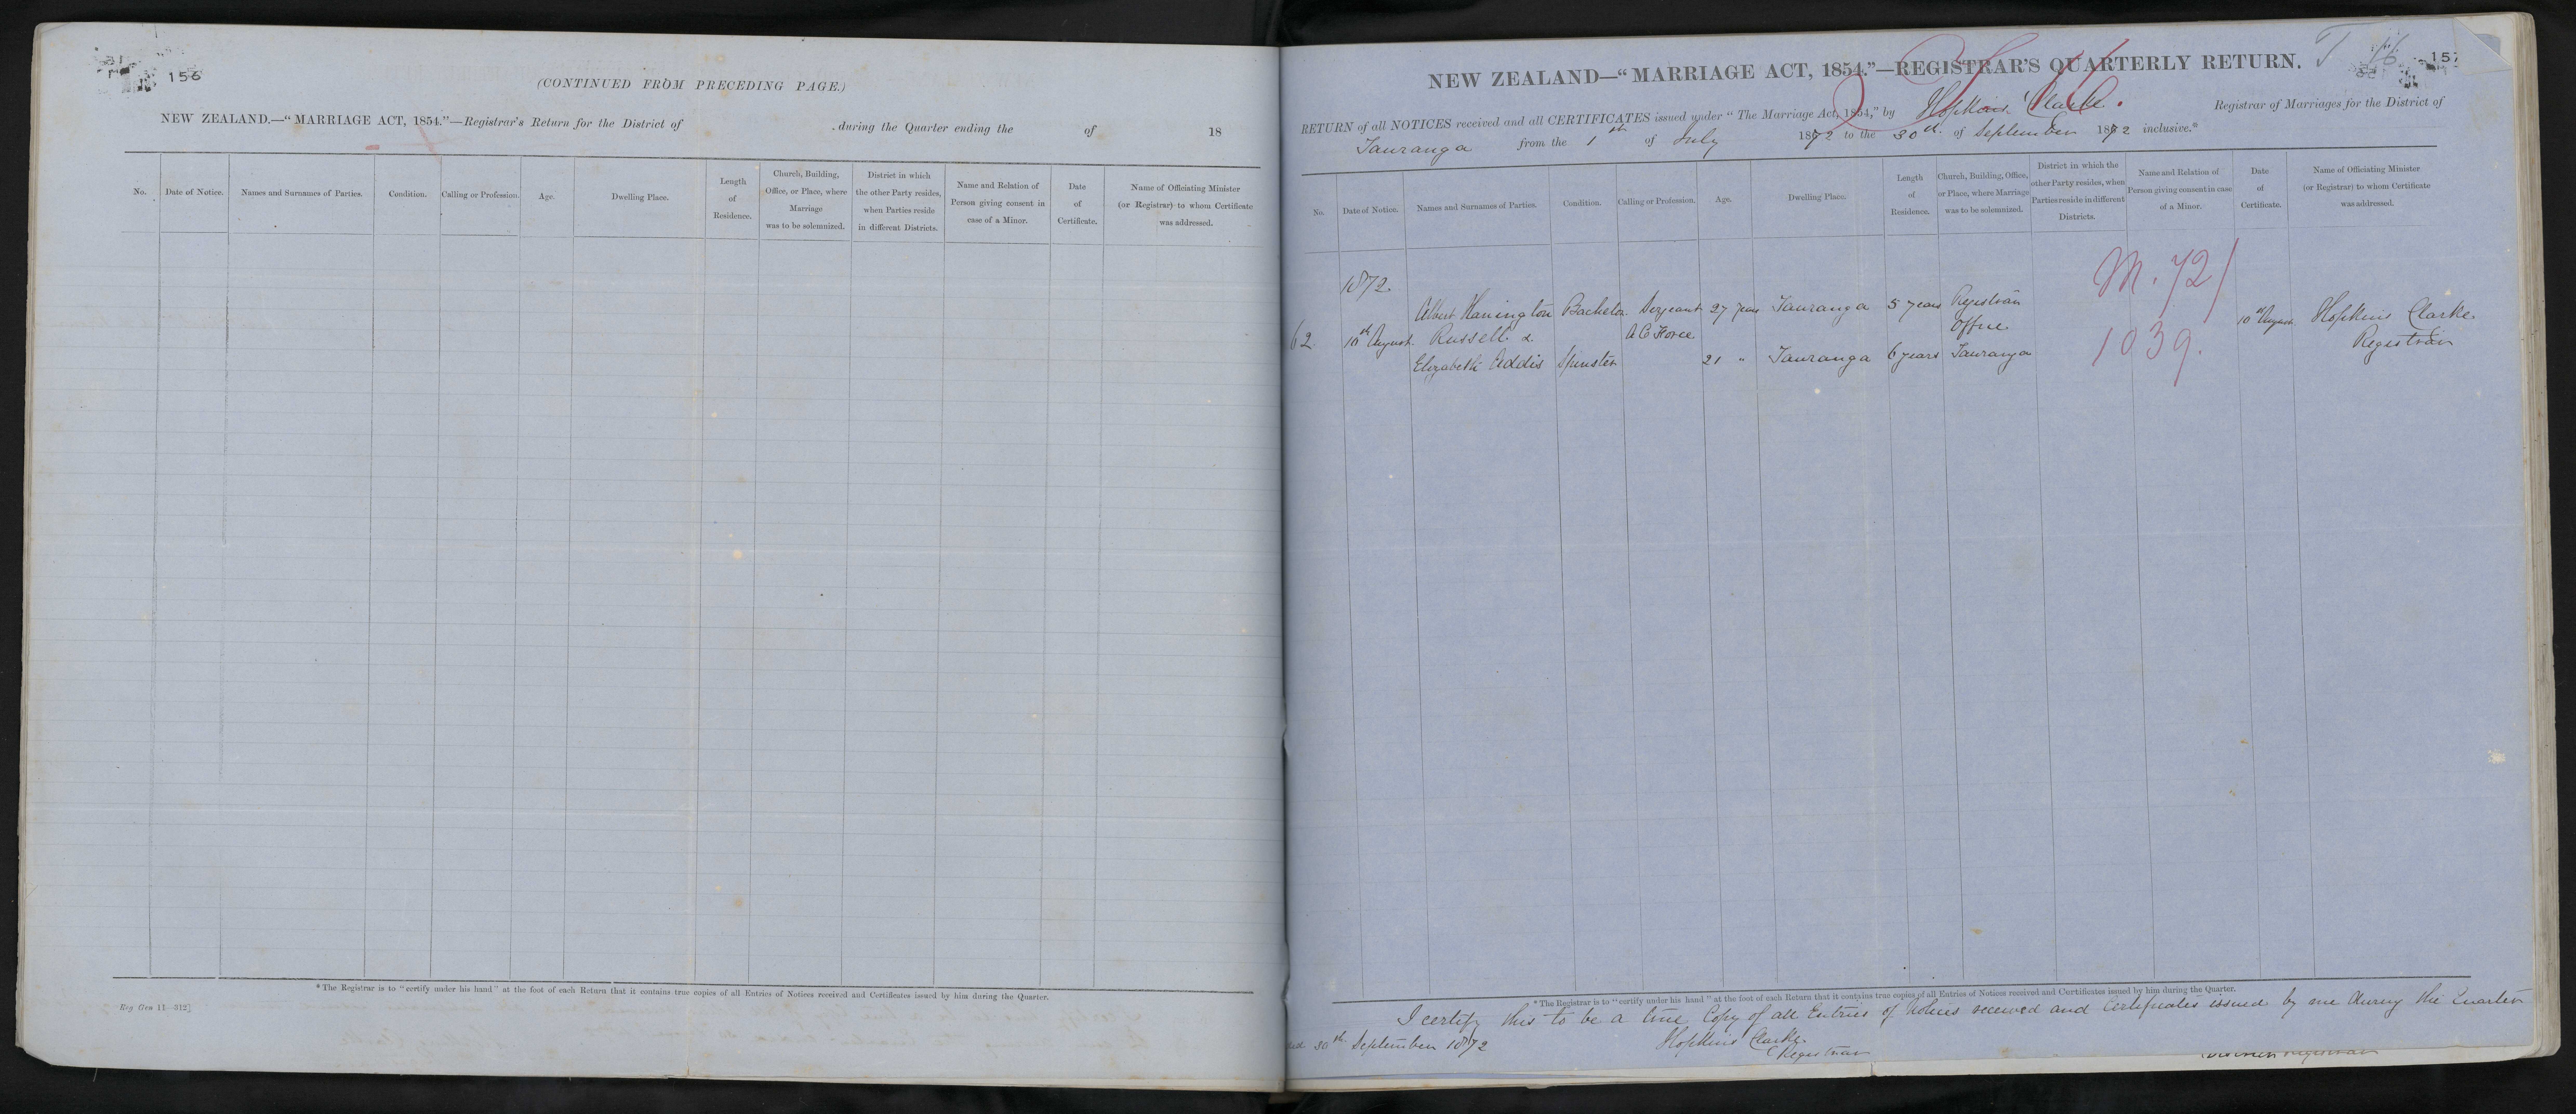 156
(CONTINUED FROM PRECEDING PAGE.)
NEW ZEALAND.—“MARRIAGE ACT, 1854.”—Registrar's Return for the District of . during the Quarter ending the of 18
No. Date of Notice. Names and Surnames of Parties. Condition. Calling or Profession. Age. Dwelling Place. Length of Residence. Church, Building, Office, or Place, where Marriage was to be solemnized. District in which the other Party resides, when Parties reside in different Districts. Name and Relation of Person giving consent in case of a Minor. Date of Certificate. Name of Officiating Minister (or Registrar) to whom Certificate was addressed.
*The Registrar is to “certify under his hand” at the foot of each Return that it contains true copies of all Entries of Notices received and Certificates issued by him during the Quarter.
Reg Gen 11—312]
157
NEW ZEALAND—“MARRIAGE ACT, 1854.”—REGISTRAR'S QUARTERLY RETURN.
RETURN of all NOTICES received and all CERTIFICATES issued under “The Marriage Act, 1854,” by Hopkins Clarke. Registrar of Marriages for the District of
Tauranga from the 1st of July 1872 to the 30th of September 1872 inclusive.*
No. Date of Notice. Names and Surnames of Parties. Condition. Calling or Profession. Age. Dwelling Place. Length of Residence. Church, Building, Office, or Place, where Marriage was to be solemnized. District in which the other Party resides, when Parties reside in different Districts. Name and Relation of Person giving consent in case of a Minor. Date of Certificate. Name of Officiating Minister (or Registrar) to whom Certificate was addressed.
1872.
M. 72/
Albert Hanington Bachelor Sergeant 27 years Tauranga 5 years Registrar
62 10th August Russell & A C Force office 10th August Hopkins Clarke
1039. Registrar
Elizabeth Addis Spinster 21 " Tauranga 6 years Tauranga
*The Registrar is to “certify under his hand” at the foot of each Return that it contains true copies of all Entries of Notices received and Certificates issued by him during the Quarter.
I certify this to be a true Copy of all Entries of Notices received and Certificates issued by me during the Quarter
30th September 1872 Hopkins Clarke.
Registrar